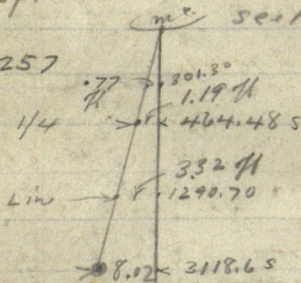 257
.77 ft 301.3°
1.19 ft
1/4 464.48 S
3.32 ft
Lin 1290.70
8.02 3118.6 S